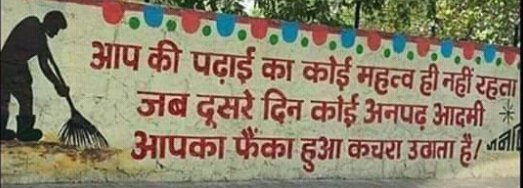 आप की पढ़ाई का कोई महत्व ही नहीं रहता
जब दूसरे दिन कोई अनपढ़ आदमी
आपका फैंका हुआ कचरा उठाता है!